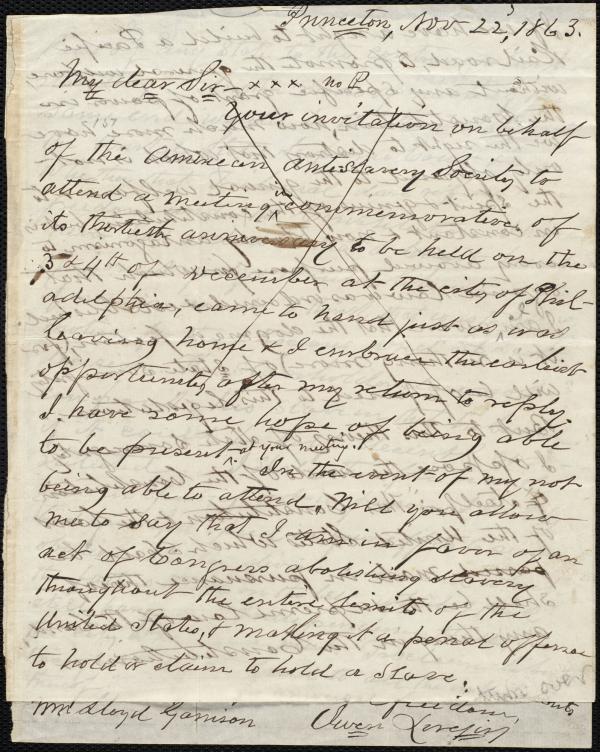 Princeton, Nov 22, 1863.
My dear Sir - x x x no P.
Your invitation on behalf
of the American Antislavery Society to
attend a meeting in commemoration of
its thirtieth anniversary to be held on the
3 & 4th of December at the city of Phil-
adelphia, came to hand just as I was
leaving home & I embrace the earliest
opportunity after my return to reply.
I have some hope of being able
to be present at your meeting. In the event of my not
being able to attend, Will you allow
me to say that I am in favor of an
act of Congress abolishing slavery
throughout the entire limits of the
United States, & making it a penal offense
to hold or claim to hold a slave.
freedom,
Wm Lloyd Garrison Owen Lovejoy